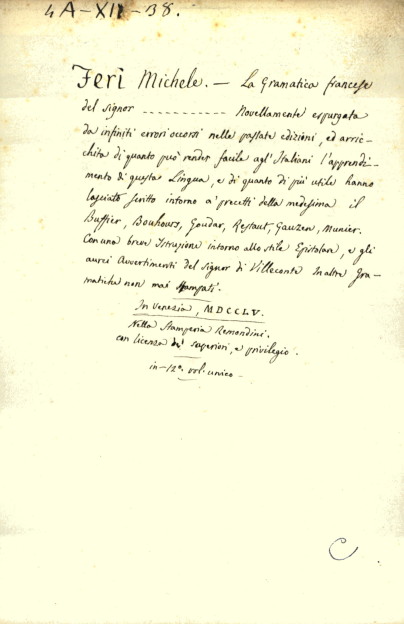 4A-XII-B8.
Ferì Michele. — La Gramatica francese
del signor ---------- Novellamente espurgata
da infiniti errori occorsi nelle passate edizioni, ed arric-
chita di quanto può render facile agl' Italiani l'apprendi-
mento di questa Lingua, e di quanto di più utile hanno
lasciato scritto intorno a' precetti della medesima il
Buffier, Bouhours, Goudar, Restaut, Gauzen, Munier.
Con una breve Istruzione intorno allo stile Epistolare, e gli
aurei Avvertimenti del Signor di Villecomte in altre Gra-
matiche non mai stampati.
In Venezia, MDCCLV.
Nella Stamperia Remondini.
con licenza de' superiori, e privilegio.
in-12°. vol. unico.
C